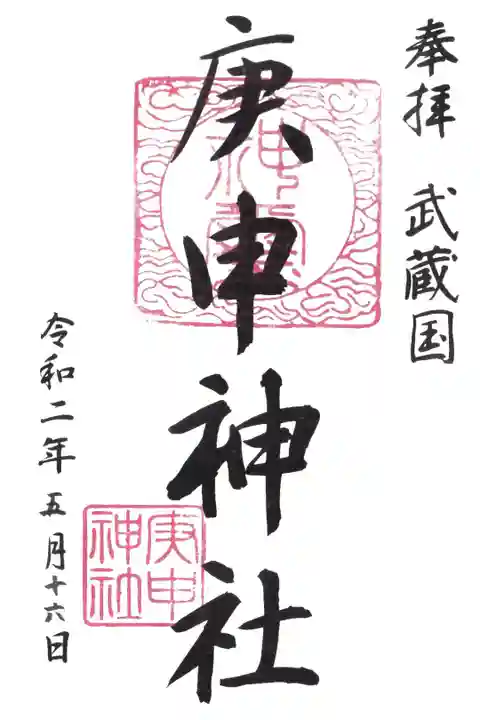 奉拝 武蔵国
庚申神社
令和二年五月十六日
神靈
庚申
神社